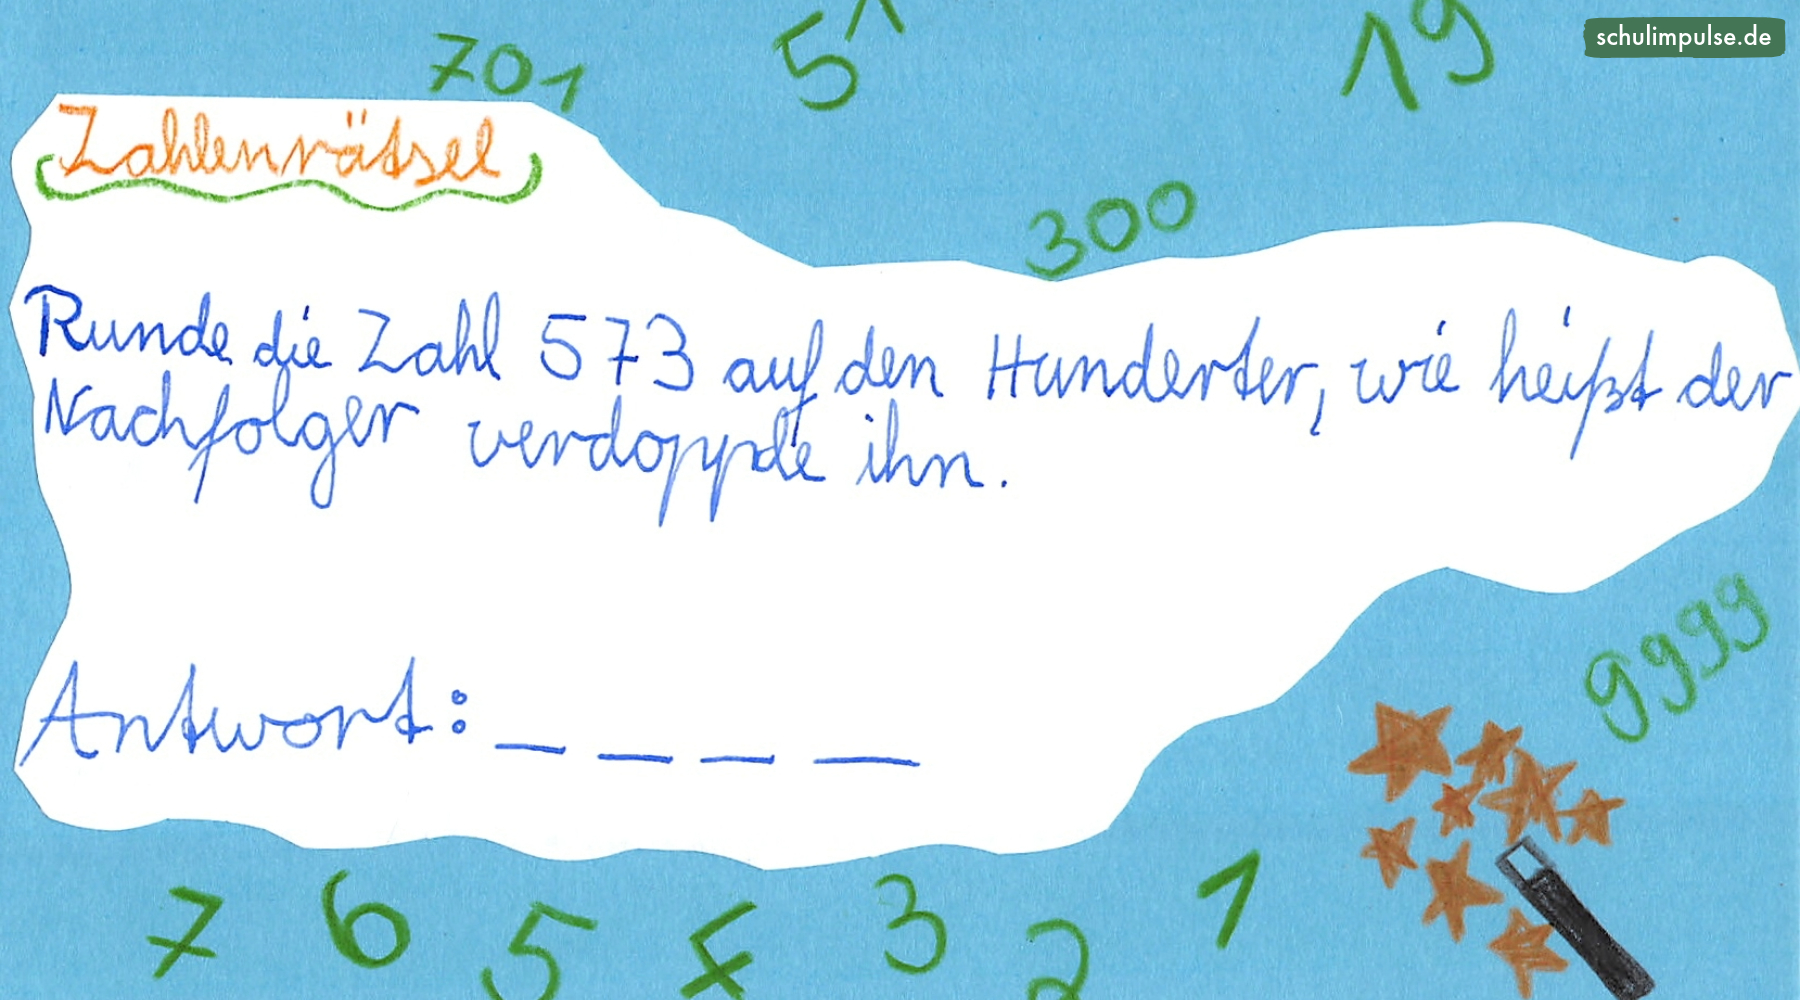 schulimpulse.de
701
51
19
Zahlenrätsel
300
Runde die Zahl 573 auf den Hunderter, wie heißt der
Nachfolger verdopple ihn.
9999
Antwort: _ _ _ _
7 6 5 4 3 2 1